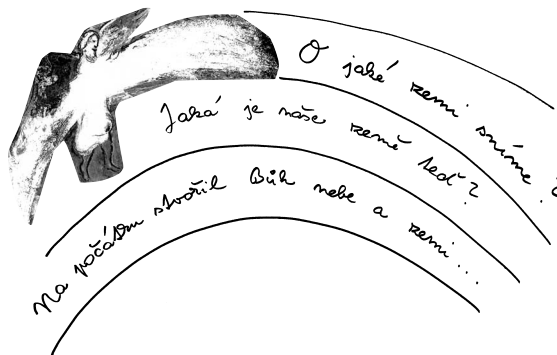 O jaké zemi sníme?
Jaká je naše země teď?
Na počátku stvořil Bůh nebe a zemi...